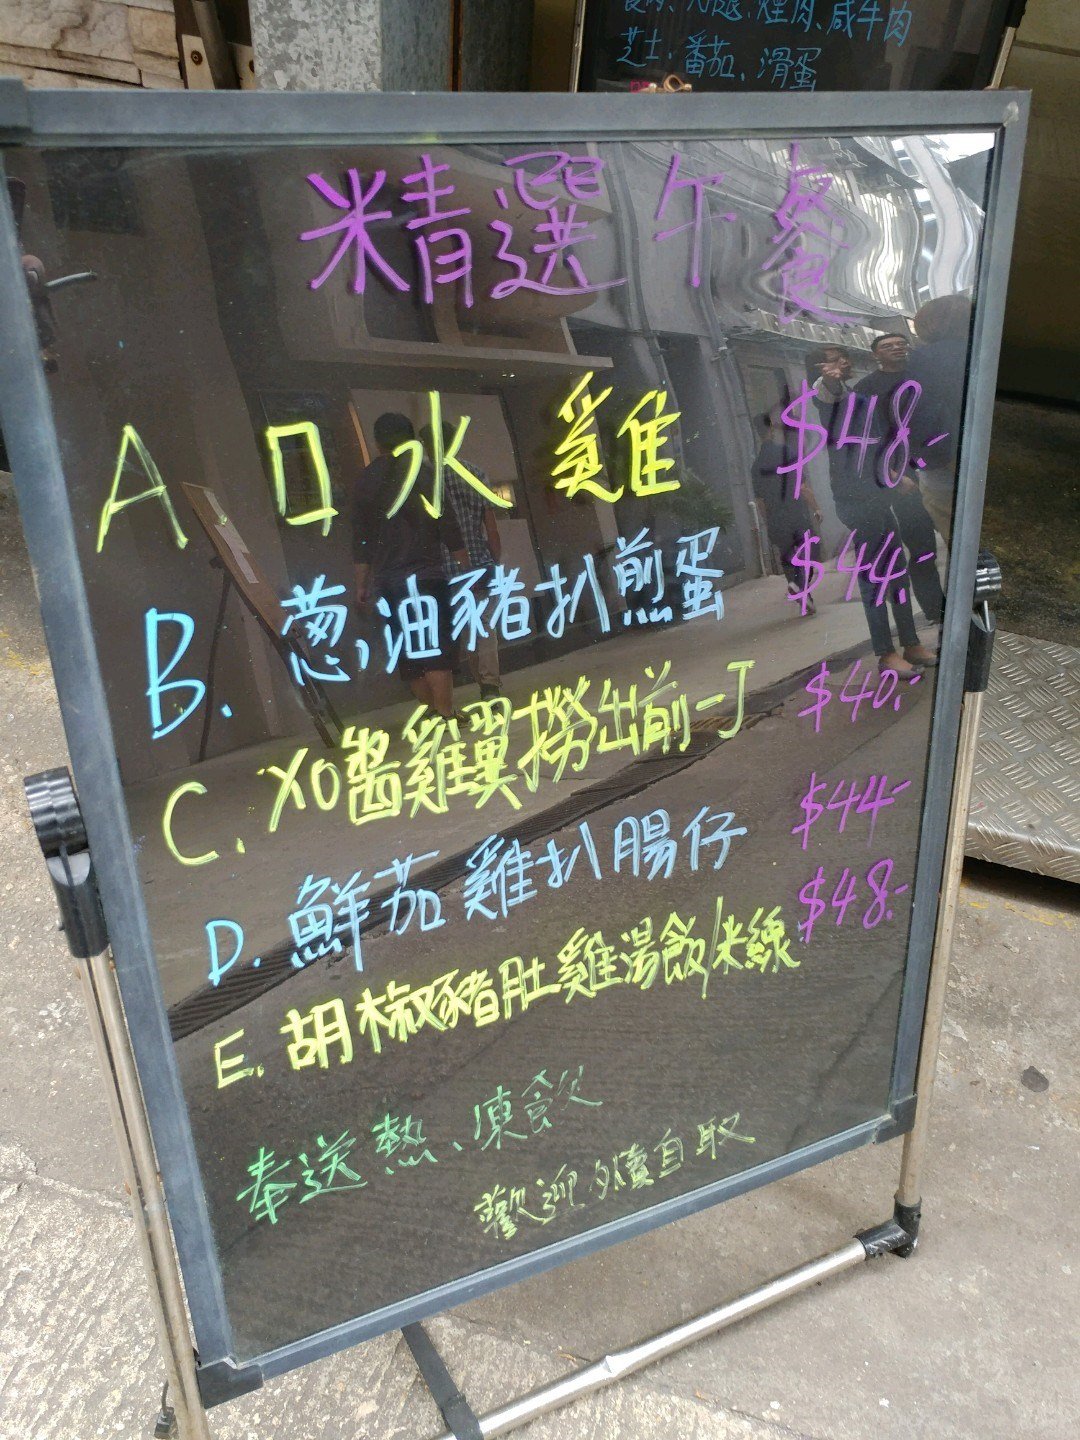 煙肉、咸牛肉
芝士、番茄、滑蛋
精選午餐
A. 口水雞 $48.-
B. 葱油豬扒煎蛋 $44.-
C. XO醬雞翼撈出前一丁 $40.-
D. 鮮茄雞扒腸仔 $44-
E. 胡椒豬肚雞湯飯/米線 $48.-
奉送熱、凍飲
歡迎外賣自取